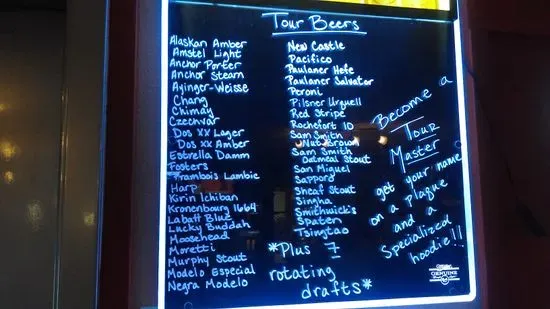 Tour Beers
Alaskan Amber
Amstel Light
Anchor Porter
Anchor Steam
Ayinger-Weisse
Chang
Chimay
Czechvar
Dos XX Lager
Dos XX Amber
Estrella Damm
Fosters
Frambois Lambic
Harp
Kirin Ichiban
Kronenbourg 1664
Labatt Blue
Lucky Buddah
Moosehead
Moretti
Murphy Stout
Modelo Especial
Negra Modelo
New Castle
Pacifico
Paulaner Hefe
Paulaner Salvator
Peroni
Pilsner Urquell
Red Stripe
Rochefort 10
Sam Smith
Nut Brown
Sam Smith
Oatmeal Stout
San Miguel
Sapporo
Sheaf Stout
Singha
Smithwick's
Spaten
Tsingtao
*Plus 7
rotating
drafts*
Become a
Tour
Master
get your name
on a plaque
and a
Specialized
hoodie!!
GENUINE